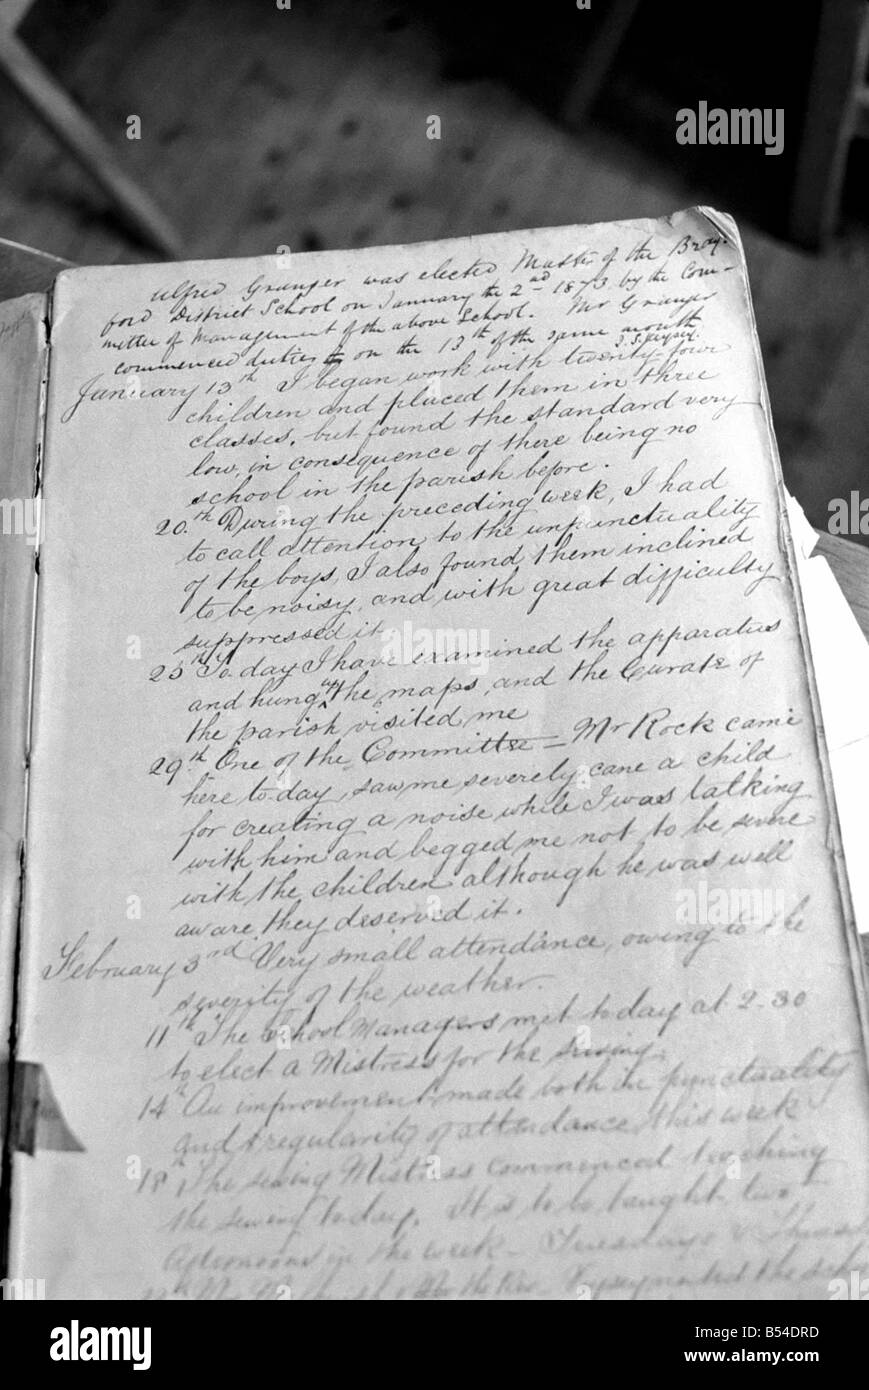 Alfred Granger was elected Master of the Bray-
ford District School on January the 2nd 1873 by the Com-
mittee of Management of the above School. Mr Granger
commenced duties on the 13th of the same month
January 13th I began work with twenty-four
children and placed them in three
classes, but found the standard very
low, in consequence of there being no
school in the parish before.
20th During the preceding week, I had
to call attention to the unpunctuality
of the boys, I also found them inclined
to be noisy, and with great difficulty
suppressed it
25th To day I have examined the apparatus
and hung up the maps, and the Curate of
the parish visited me
29th One of the Committee = Mr Rock came
here to day, saw me severely cane a child
for creating a noise while I was talking
with him and begged me not to be severe
with the children although he was well
aware they deserved it.
February 3rd Very small attendance, owing to the
severity of the weather.
11th The School Managers met to day at 2-30
to elect a Mistress for the sewing.
14th An improvement made both in punctuality
and regularity of attendance this week
18th The sewing Mistress commenced teaching
the sewing to day. It is to be taught two
afternoons in the week - Tuesdays &
alamy
a
alamy
Image ID: B54DRD
www.alamy.com